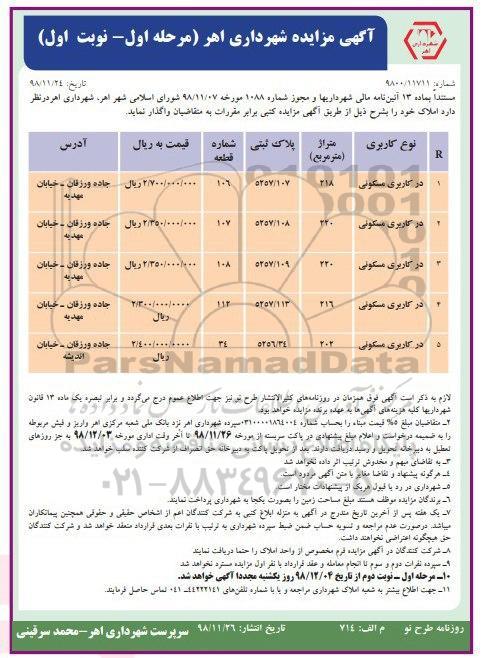 آگهی مزایده شهرداری اهر (مرحله اول- نوبت اول)
شهرداری اهر
شماره: ۹۸۰۰/۱۱۷۱۱
تاریخ: ۹۸/۱۱/۲۴
مستندا بماده ۱۳ آئین‌نامه مالی شهرداریها و مجوز شماره ۱۰۸۸ مورخه ۹۸/۱۱/۰۷ شورای اسلامی شهر اهر، شهرداری اهردرنظر
دارد املاک خود را بشرح ذیل از طریق آگهی مزایده کتبی برابر مقررات به متقاضیان واگذار نماید.
R نوع کاربری متراژ (مترمربع) پلاک ثبتی شماره قطعه قیمت به ریال آدرس
۱ در کاربری مسکونی ۲۱۸ ۵۲۵۷/۱۰۷ ۱۰۶ ۲/۷۰۰/۰۰۰/۰۰۰ ریال جاده ورزقان ـ خیابان مهدیه
۲ در کاربری مسکونی ۲۲۰ ۵۲۵۷/۱۰۸ ۱۰۷ ۲/۳۵۰/۰۰۰/۰۰۰ ریال جاده ورزقان ـ خیابان مهدیه
۳ در کاربری مسکونی ۲۲۰ ۵۲۵۷/۱۰۹ ۱۰۸ ۲/۳۵۰۰۰۰/۰۰۰ ریال جاده ورزقان ـ خیابان مهدیه
۴ در کاربری مسکونی ۲۱۶ ۵۲۵۷/۱۱۳ ۱۱۲ ۲/۳۰۰/۰۰۰/۰۰۰۰ ریال جاده ورزقان ـ خیابان مهدیه
۵ در کاربری مسکونی ۲۰۲ ۵۲۵۶/۳۴ ۳۴ ۲/۴۰۰/۰۰۰/۰۰۰۰ ریال جاده ورزقان ـ خیابان اندیشه
ParsNamadData
لازم به ذکر است آگهی فوق همزمان در روزنامه‌های کثیرالانتشار طرح نو نیز جهت اطلاع عموم درج می‌گردد و برابر تبصره یک ماده ۱۳ قانون
شهرداریها کلیه هزینه‌های آگهی‌ها به عهده برنده مزایده خواهد بود.
۲- متقاضیان مبلغ ۵% قیمت مبناء را بحساب شماره ۰۳۱۰۰۰۰۰۱۸۶۴۰۰۴ سپرده شهرداری اهر نزد بانک ملی شعبه مرکزی اهر واریز و فیش مربوطه
را به ضمیمه درخواست و اعلام مبلغ پیشنهادی در پاکت سربسته از مورخه ۹۸/۱۱/۲۶ تا آخر وقت اداری مورخه ۹۸/۱۲/۰۳ به جز روزهای
تعطیل به دبیرخانه تحویل و رسید دریافت دارند. بعد از تحویل پاکت به دبیرخانه حق انصراف از شرکت کننده سلب خواهد شد.
۳- به تقاضای مبهم و مخدوش ترتیب اثر داده نخواهد شد
۴- هرگونه پیشنهاد و تقاضا مغایر با متن آگهی مردود است.
۵- شهرداری در رد یا قبول هریک از پیشنهادات مختار است
۶- برندگان مزایده موظف هستند مبلغ مساحت زمین را بصورت یکجا به شهرداری پرداخت نمایند.
۷- یک هفته پس از آخرین تاریخ مندرج در آگهی به منزله ابلاغ کتبی به شرکت کنندگان اعم از اشخاص حقیقی و حقوقی همچنین پیمانکاران
میباشد. درصورت عدم مراجعه و تسویه حساب ضمن ضبط سپرده شهرداری به ترتیب با نفرات بعدی قرارداد منعقد خواهد شد و شرکت کنندگان
حق هیچگونه اعتراضی نخواهند داشت.
۸- شرکت کنندگان در آگهی مزایده فرم مخصوص از واحد املاک را حتما دریافت نمایند
۹- سپرده نفرات دوم و سوم تا انجام معامله و عقد قرارداد با نفر اول مزایده مسترد نخواهد شد.
۱۰ـ مرحله اول ـ نوبت دوم از تاریخ ۹۸/۱۲/۰۴ روز یکشنبه مجددا آگهی خواهد شد.
۱۱- جهت اطلاع بیشتر به شعبه املاک شهرداری مراجعه و یا با شماره تلفن‌های ۴۴۲۲۲۱۴۱- ۰۴۱ تماس حاصل فرمایند.
۰۲۱-۸۸۳۴۹۶۷۰-۵
روزنامه طرح نو م الف: ۷۱۴ تاریخ انتشار: ۹۸/۱۱/۲۶ سرپرست شهرداری اهر-محمد سرقینی